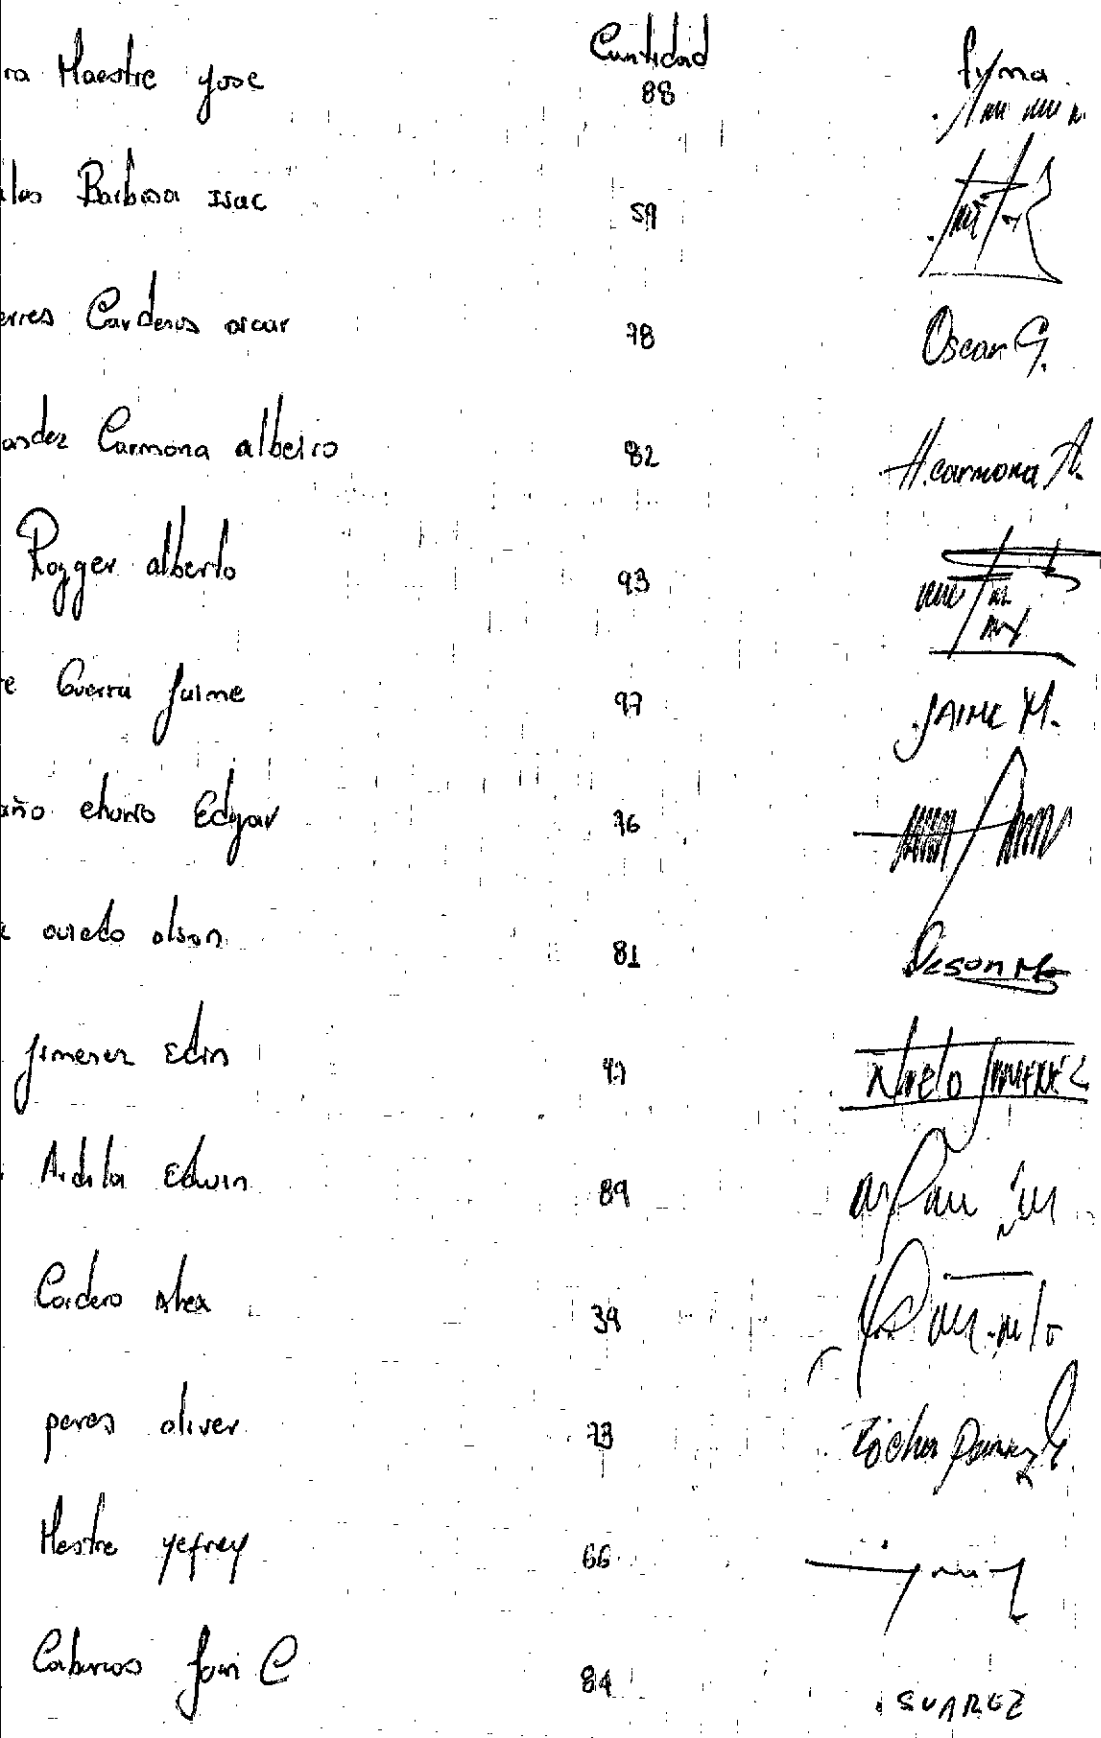 Cantidad fyrma
ra Maestre jose 88
Barbosa Isac 59
erres Cardenas oscar 78 Oscar G.
andez Carmona albeiro 82 H. carmona A.
Rogger alberto 93
e Guerra Jaime 97 JAIME M.
año Edgar 76
oviedo olson 81
Jimenez Edin Nieto JIMENEZ
Ardila Edwin 89
Cordero Alex 39
peres oliver 73
Mestre yefrey 66
Cabarcas C 84 SUAREZ